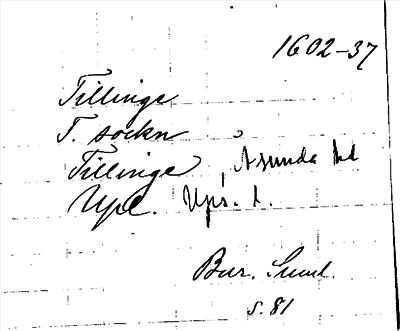 1602-37
Tillinge
T. sockn
Tillinge, Åsunda hd
Upl. Ups. l.
Bur. Suml.
s. 81